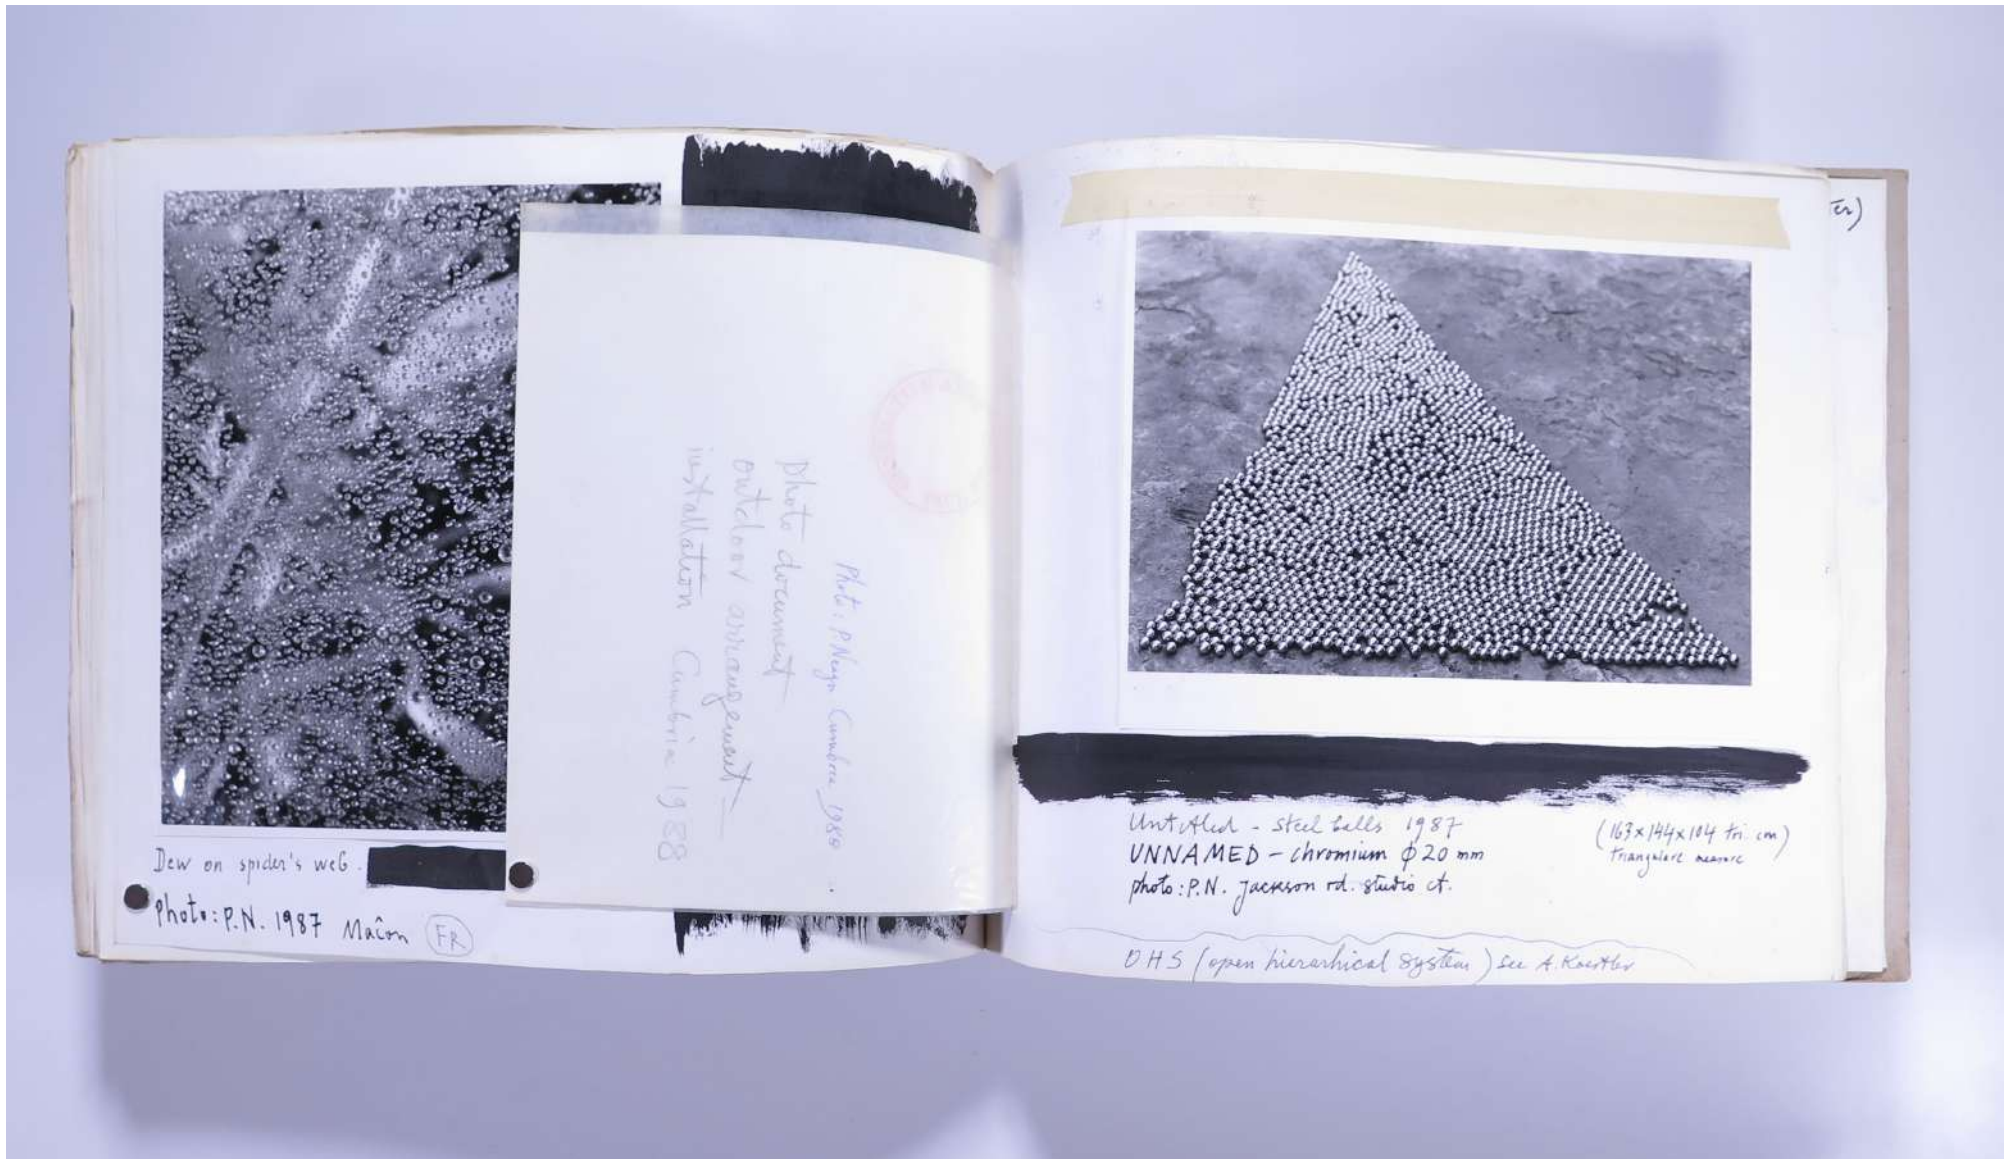 Dew on spider's web.
Photo: P.N. 1987 Mâcon FR
Photo: P.Neagu Cumbria 1988
Photo document
outdoor arrangement –
installation Cumbria 1988
Untitled – steel balls 1987
UNNAMED – chromium ϕ 20 mm
photo: P.N. jackson rd. studio ct.
(163 x 144 x 104 tri. cm)
triangulare measure
OHS (open hierarhical system) see A. Koestler